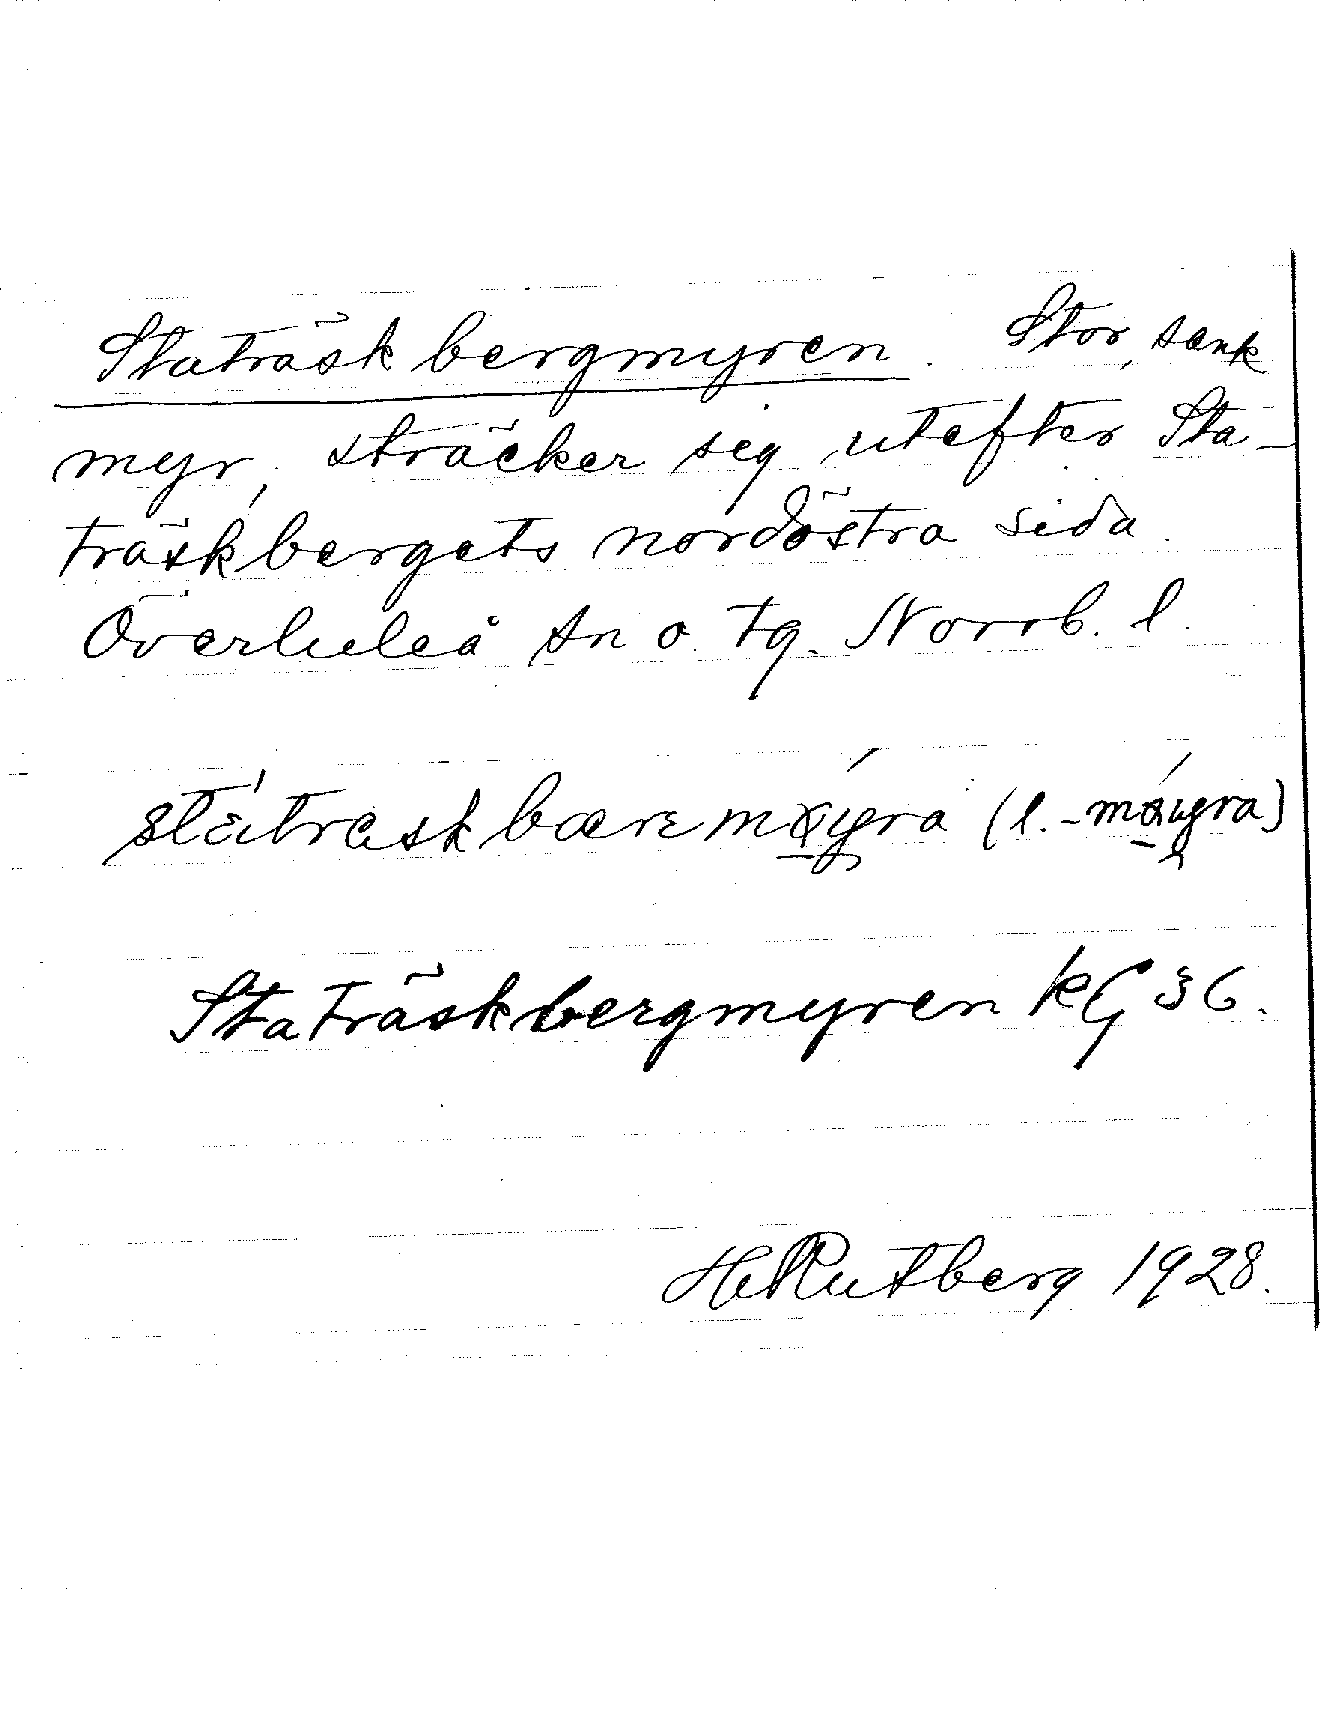 Staträskbergmyren. Stor, sank
myr, sträcker sig utefter Sta-
träskbergets nordöstra sida.
Överluleå sn o. tg. Norrb. l.
(l.
Staträskbergmyren KG 36.
H Rutberg 1928.